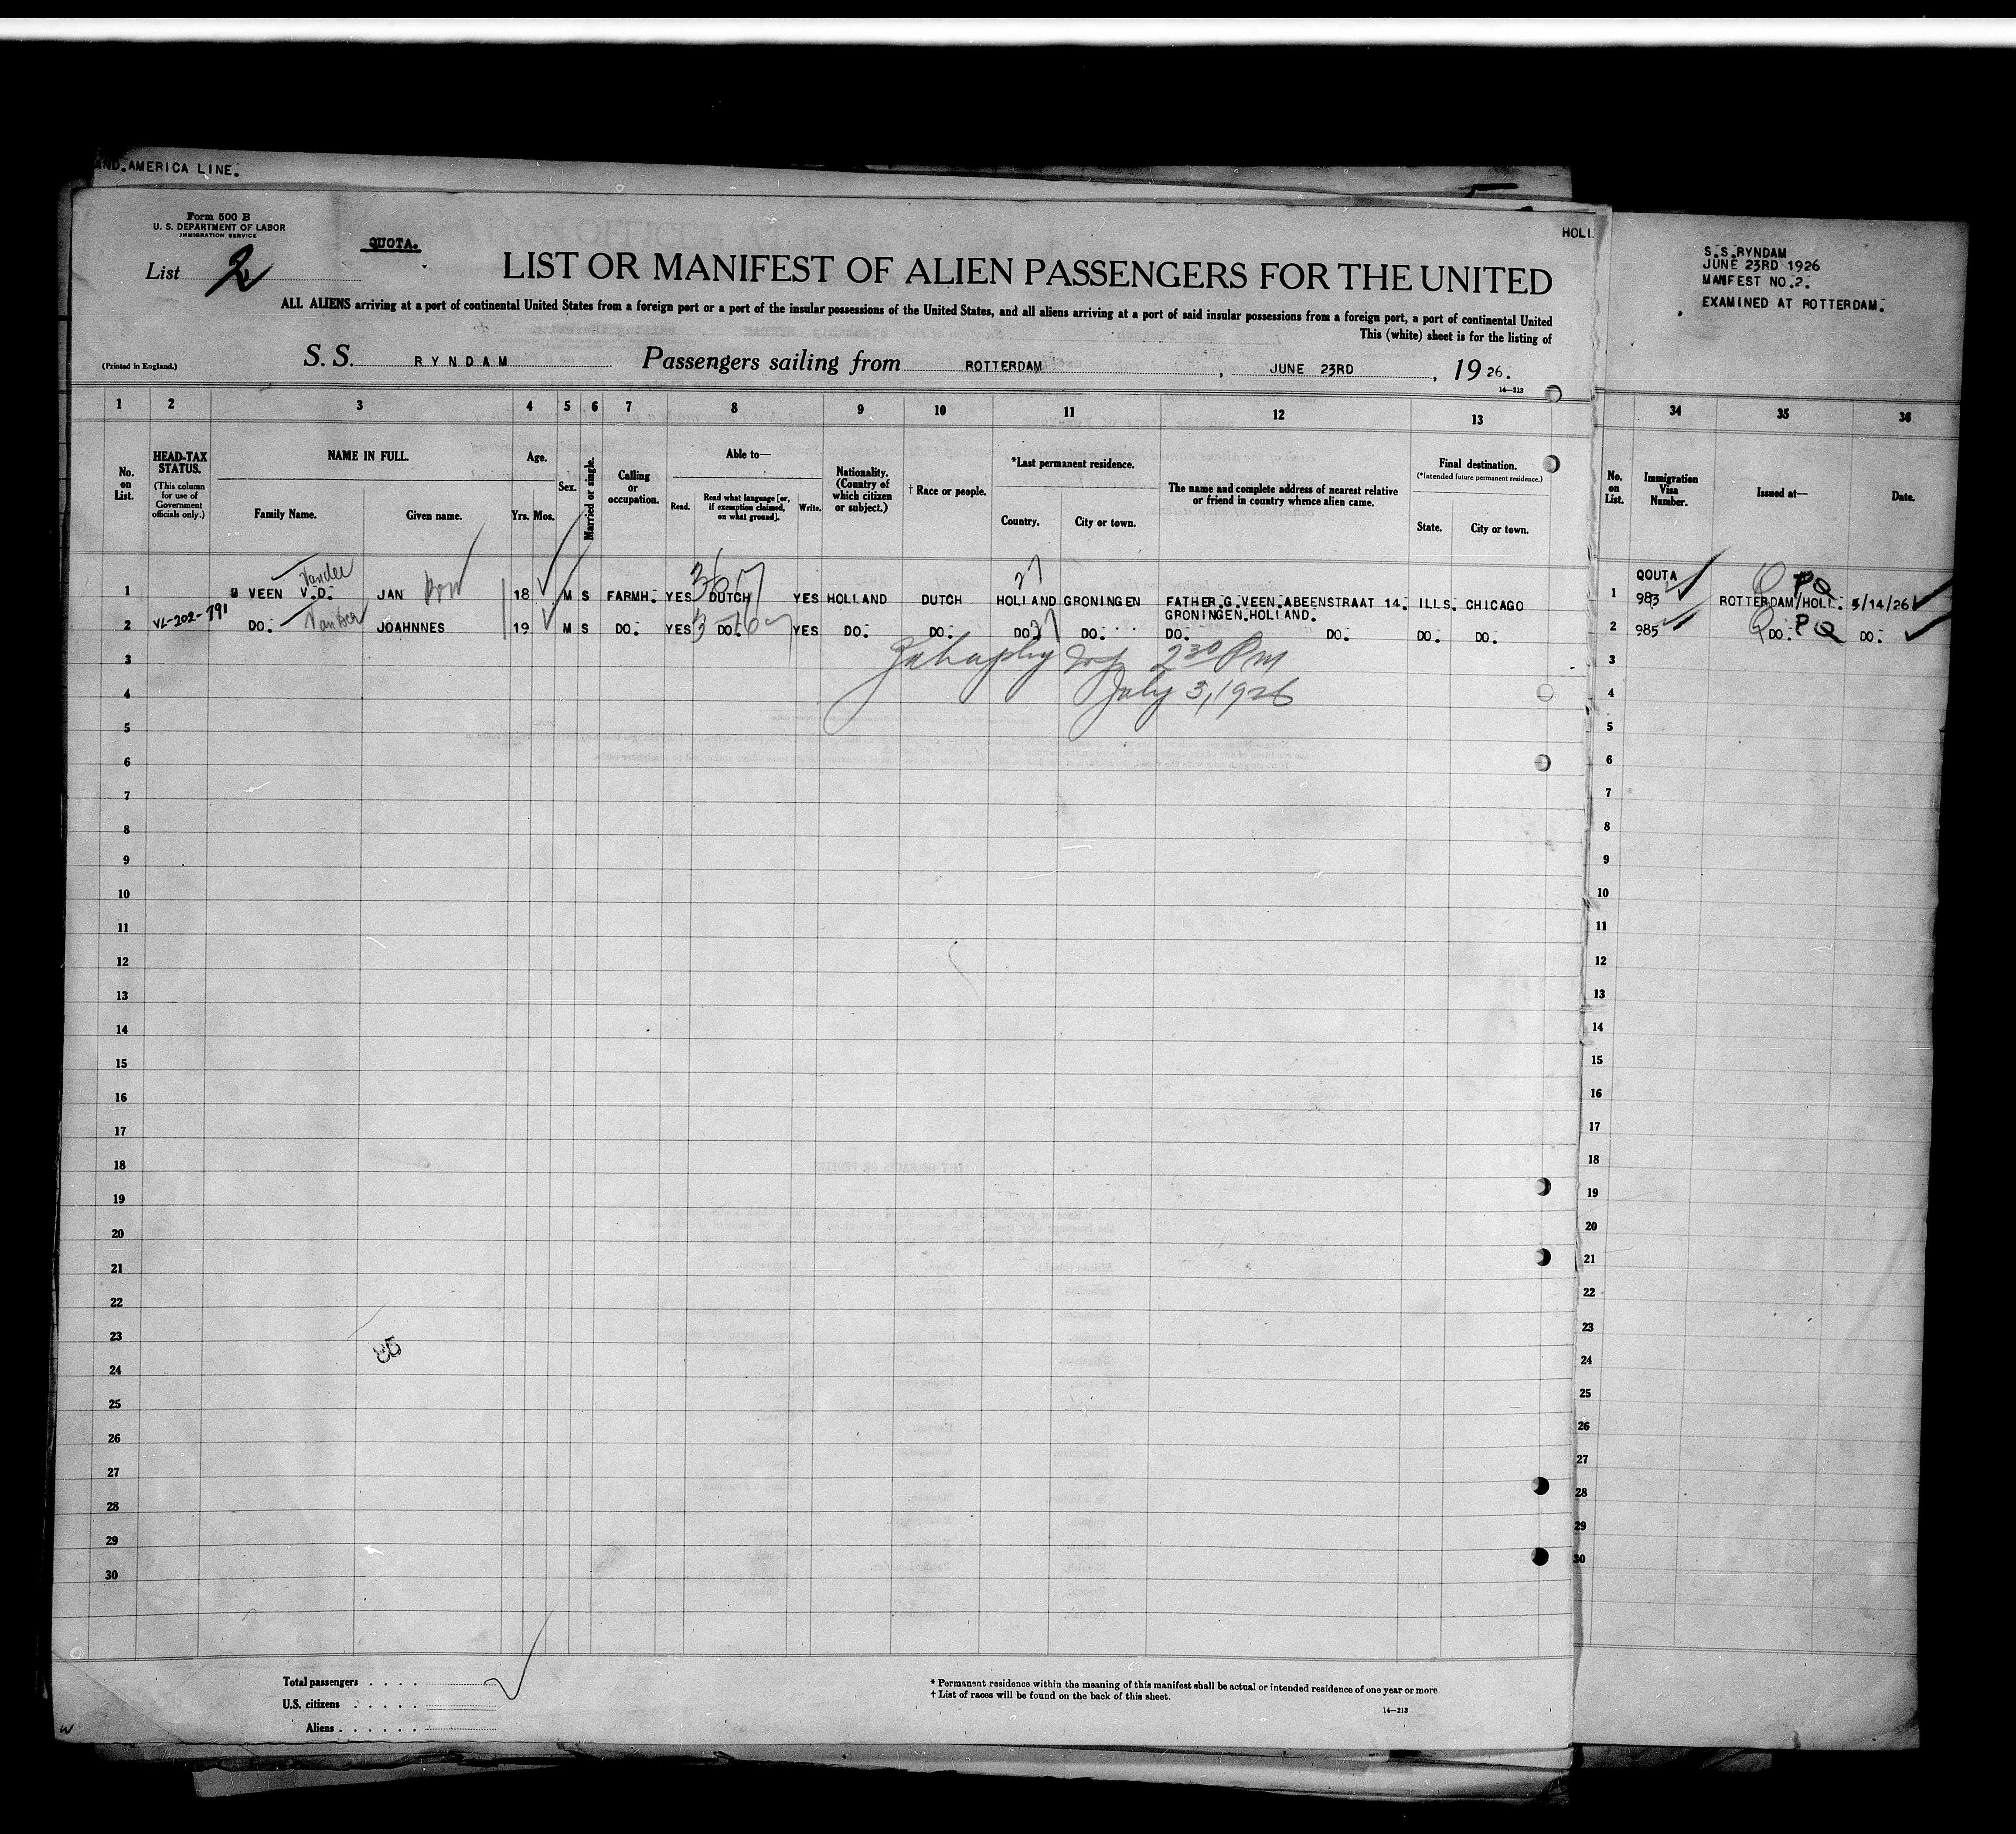 AND.AMERICA LINE.
Form 500 B
U. S. DEPARTMENT OF LABOR
IMMIGRATION SERVICE
QUOTA.
HOLL
List 2
LIST OR MANIFEST OF ALIEN PASSENGERS FOR THE UNITED
ALL ALIENS arriving at a port of continental United States from a foreign port or a port of the insular possessions of the United States, and all aliens arriving at a port of said insular possessions from a foreign port, a port of continental United
This (white) sheet is for the listing of
(Printed in England.)
S. S. RYNDAM Passengers sailing from ROTTERDAM , JUNE 23RD , 19 26.
14—213
S.S.RYNDAM
JUNE 23RD 1926
MANIFEST NO.2.
EXAMINED AT ROTTERDAM.
1 2 3 4 5 6 7 8 9 10 11 12 13 34 35 36
No. on List.
HEAD-TAX STATUS.
(This column for use of Government officials only.)
NAME IN FULL.
Family Name. Given name.
Age.
Yrs. Mos.
Sex.
Married or single.
Calling or occupation.
Able to—
Read. Read what language [or, if exemption claimed, on what ground]. Write.
Nationality. (Country of which citizen or subject.)
† Race or people.
*Last permanent residence.
Country. City or town.
The name and complete address of nearest relative or friend in country whence alien came.
Final destination.
(*Intended future permanent residence.)
State. City or town.
No. on List.
Immigration Visa Number.
Issued at—
Date.
Vander
QOUTA
1 VEEN V.D. JAN 18 M S FARMH. YES DUTCH YES HOLLAND DUTCH HOLLAND GRONINGEN FATHER.G.VEEN.ABEENSTRAAT 14. ILLS. CHICAGO 1 983 ROTTERDAM/HOLL. 5/14/26
GRONINGEN.HOLLAND.
VL-202-791
2 DO. Vander JOAHNNES 19 M S DO. YES DO. YES DO. DO. DO. DO. DO. DO. DO. DO. 2 985 DO. PQ DO.
2 30 Pm
July 3, 1926
3
4
5
6
7
8
9
10
11
12
13
14
15
16
17
18
19
20
21
22
23
24
25
26
27
28
29
30
Total passengers
U.S. citizens
Aliens
* Permanent residence within the meaning of this manifest shall be actual or intended residence of one year or more.
† List of races will be found on the back of this sheet.
14—213
W